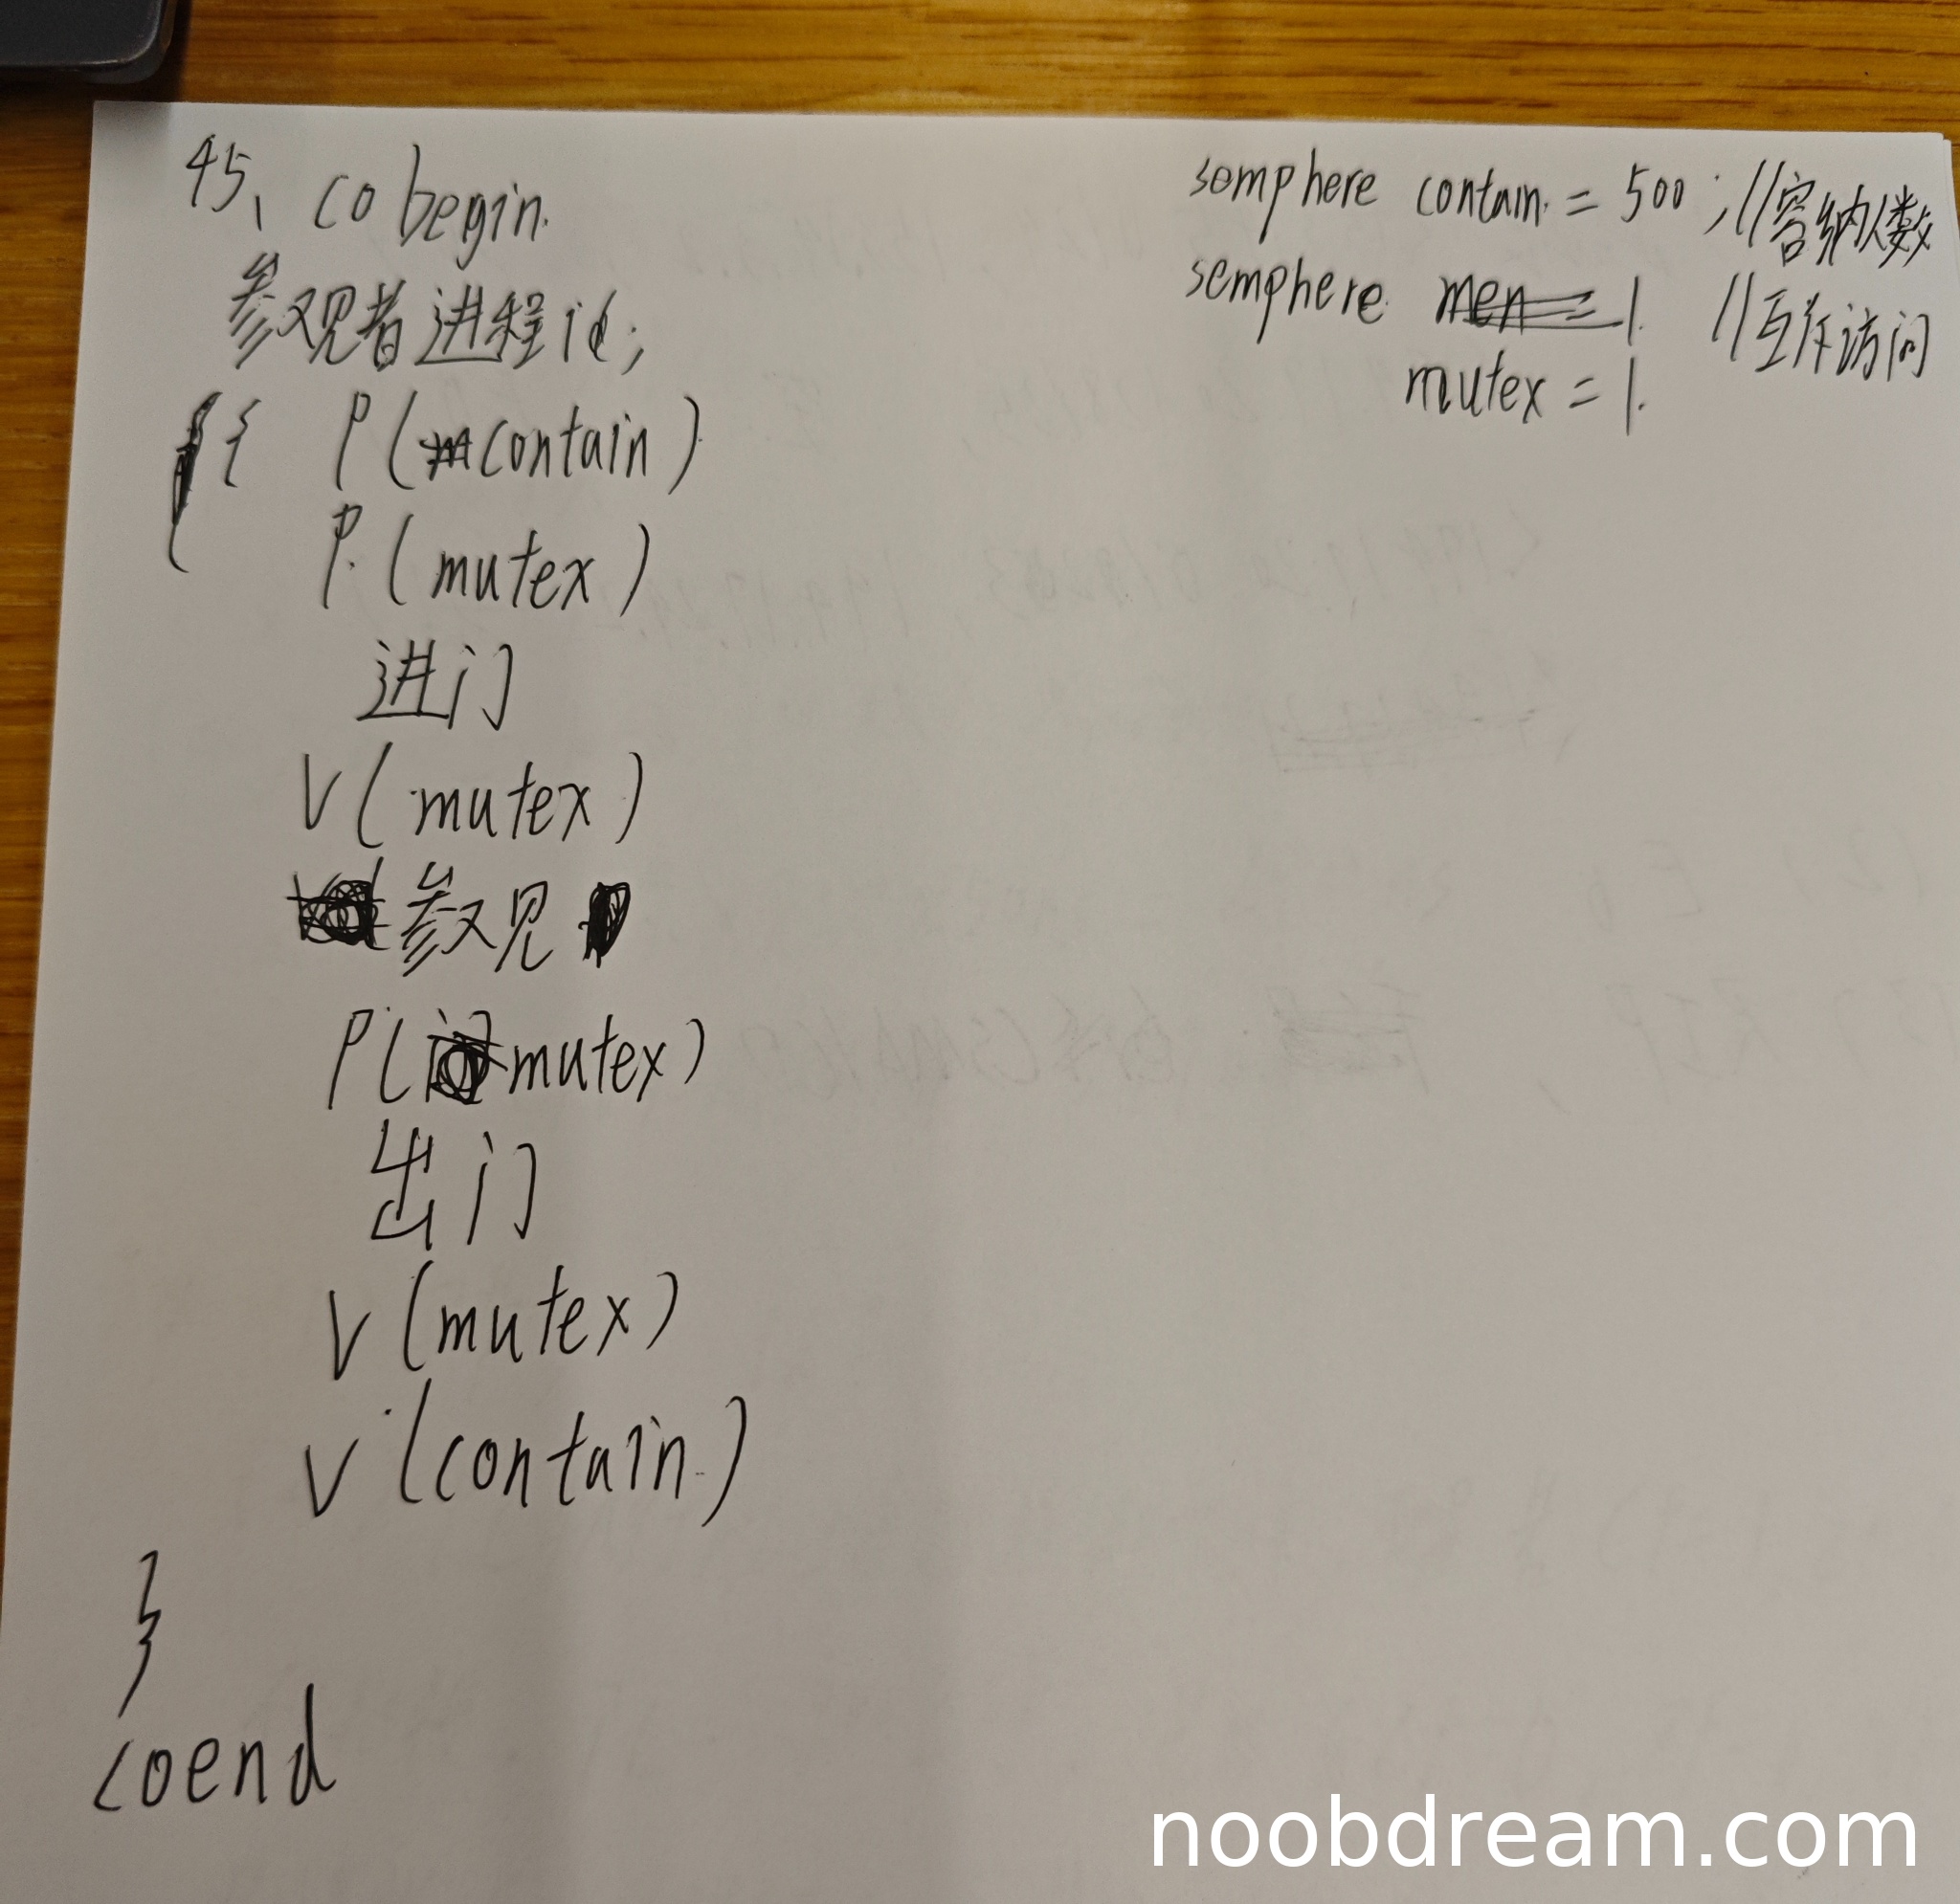 45、co begin.
参观者进程id;
{ P(contain)
P.(mutex)
进门
V(mutex)
参观
P(mutex)
出门
V(mutex)
V(contain)
}
coend
semphere contain = 500 ; //容纳人数
semphere men = 1. //互斥访问
mutex = 1.
noobdream.com